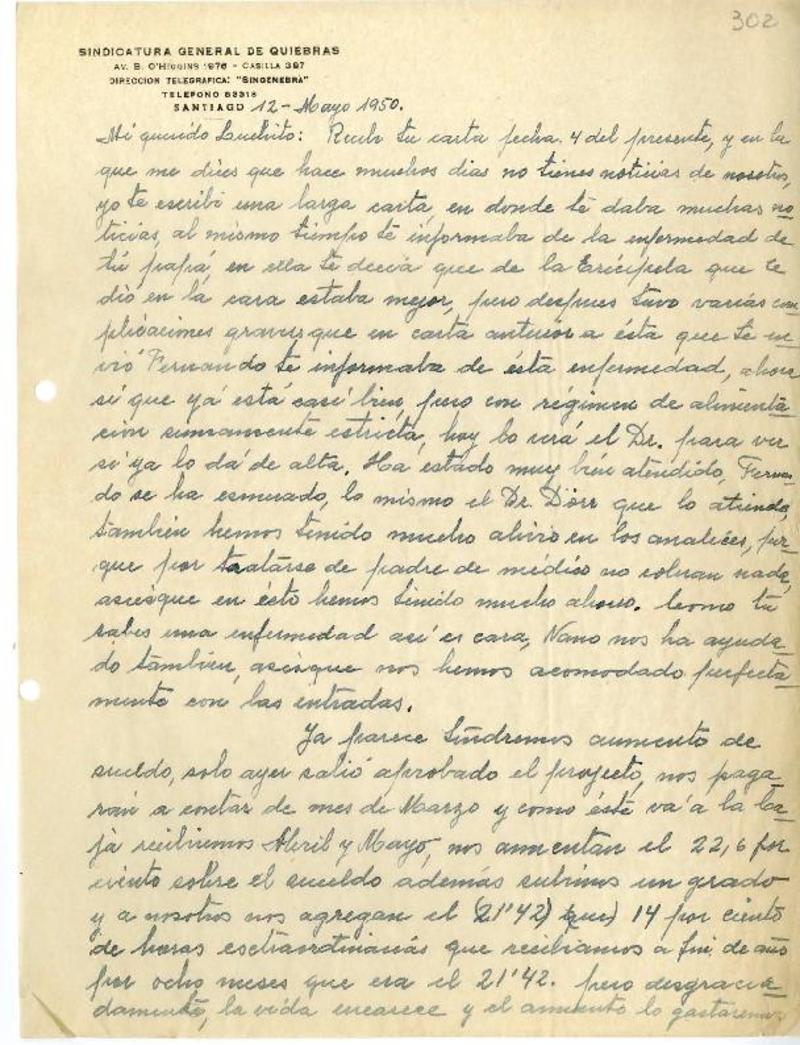 302
SINDICATURA GENERAL DE QUIEBRAS
AV. B. O'HIGGINS 1976 - CASILLA 397
DIRECCION TELEGRAFICA: "SINGENEBRA"
TELEFONO 82318
SANTIAGO 12 - Mayo 1950.
Mi querido Luchito: Recibí tu carta fecha 4 del presente, y en la
que me dices que hace muchos dias no tienes noticias de nosotros,
yo te escribí una larga carta, en donde té daba muchas no
ticias, al mismo tiempo té informaba de la enfermedad de
tú papá, en ella te decía que de la Ericipela que le
dió en la cara estaba mejor, pero despues tuvo varias com
plicaciones graves, que en carta anterior a ésta que te en
vió Fernando te informaba de ésta enfermedad, ahora
sí que yá está casi bien, pero con régimen de alimenta
ción sumamente estricta, hoy lo verá el Dr. para ver
si ya lo dá de alta. Ha estado muy bien atendido, Fernan
do se ha esmerado, lo mismo el Dr. Dörr que lo atiende,
tambien hemos tenido mucho alivio en los analices, por
que por tratarse de padre de médico no cobran nada,
asiesque en ésto hemos tenido mucho ahorro. Como tú
sabes una enfermedad así es cara, Nano nos ha ayuda
do tambien, asiesque nos hemos acomodado perfecta
mente con las entradas.
Ya parece tendremos aumento de
sueldo, solo ayer salió aprobado el proyecto, nos paga
ran a contar de mes de Marzo y como éste vá a la Ca
ja recibiremos Abril y Mayo, nos aumentan el 22,6 por
ciento sobre el sueldo además subimos un grado
y a nosotros nos agregan el (21'42) 14 por ciento
de horas esctraordinarias que recibiamos a fin de año
por ocho meses que era el 21'42. pero desgracia
damente, la vida encarece y el aumento lo gastaremos